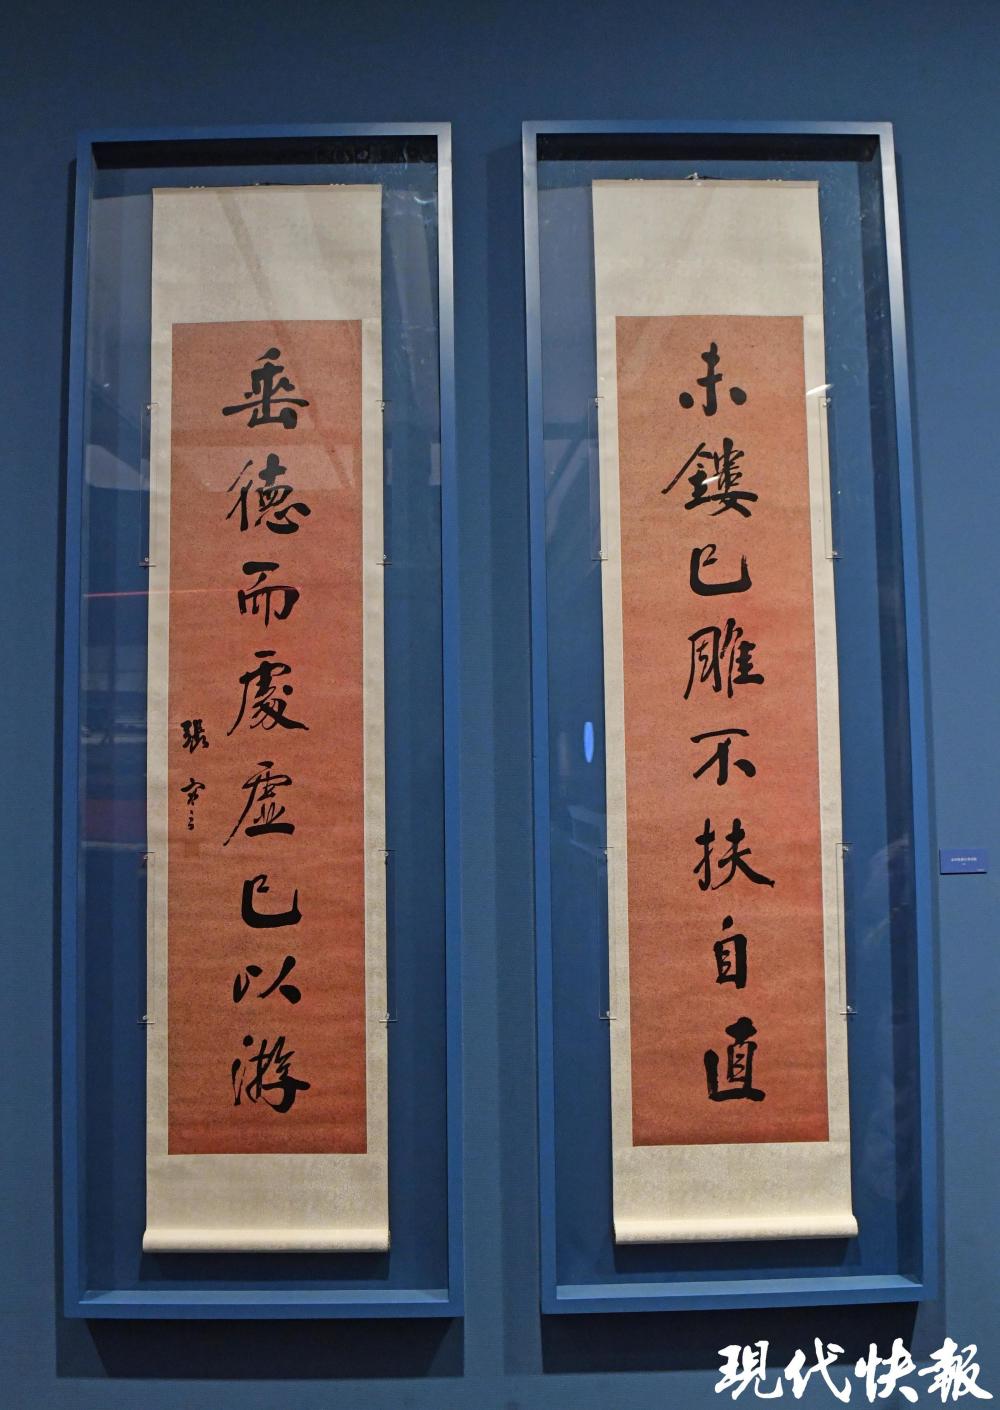 未鏤已雕不扶自直
垂德而處虛己以游
張謇
現代快報